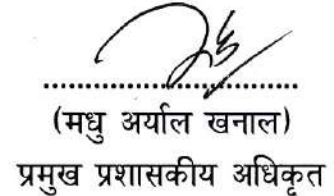 (मधु अर्याल खनाल)
प्रमुख प्रशासकीय अधिकृत